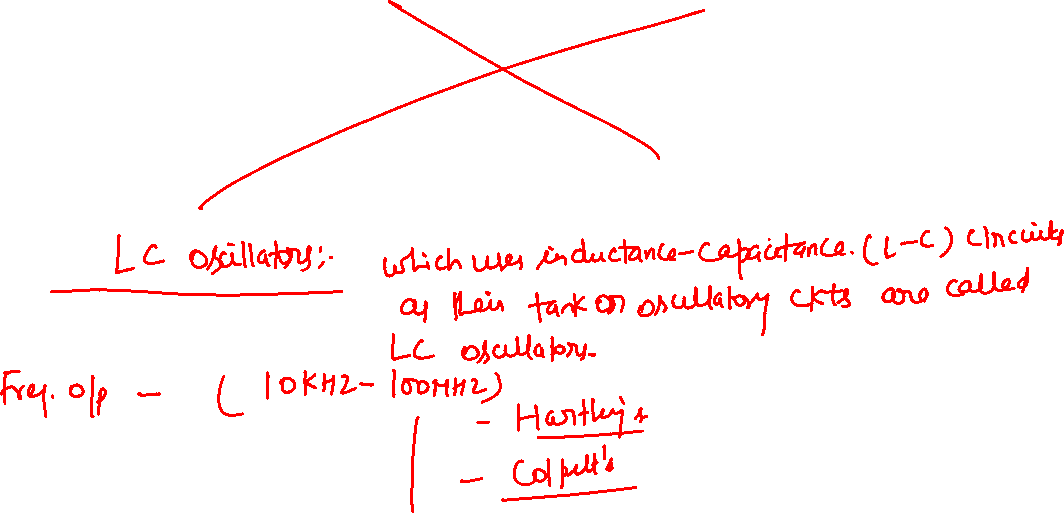 LC oscillators:- which uses inductance-capacitance. (L-C) circuits
as their tank or oscillatory ckts are called
LC oscillators.
Freq. o/p - (10KHZ-100MHZ)
- Hartley's
- Colpitt's